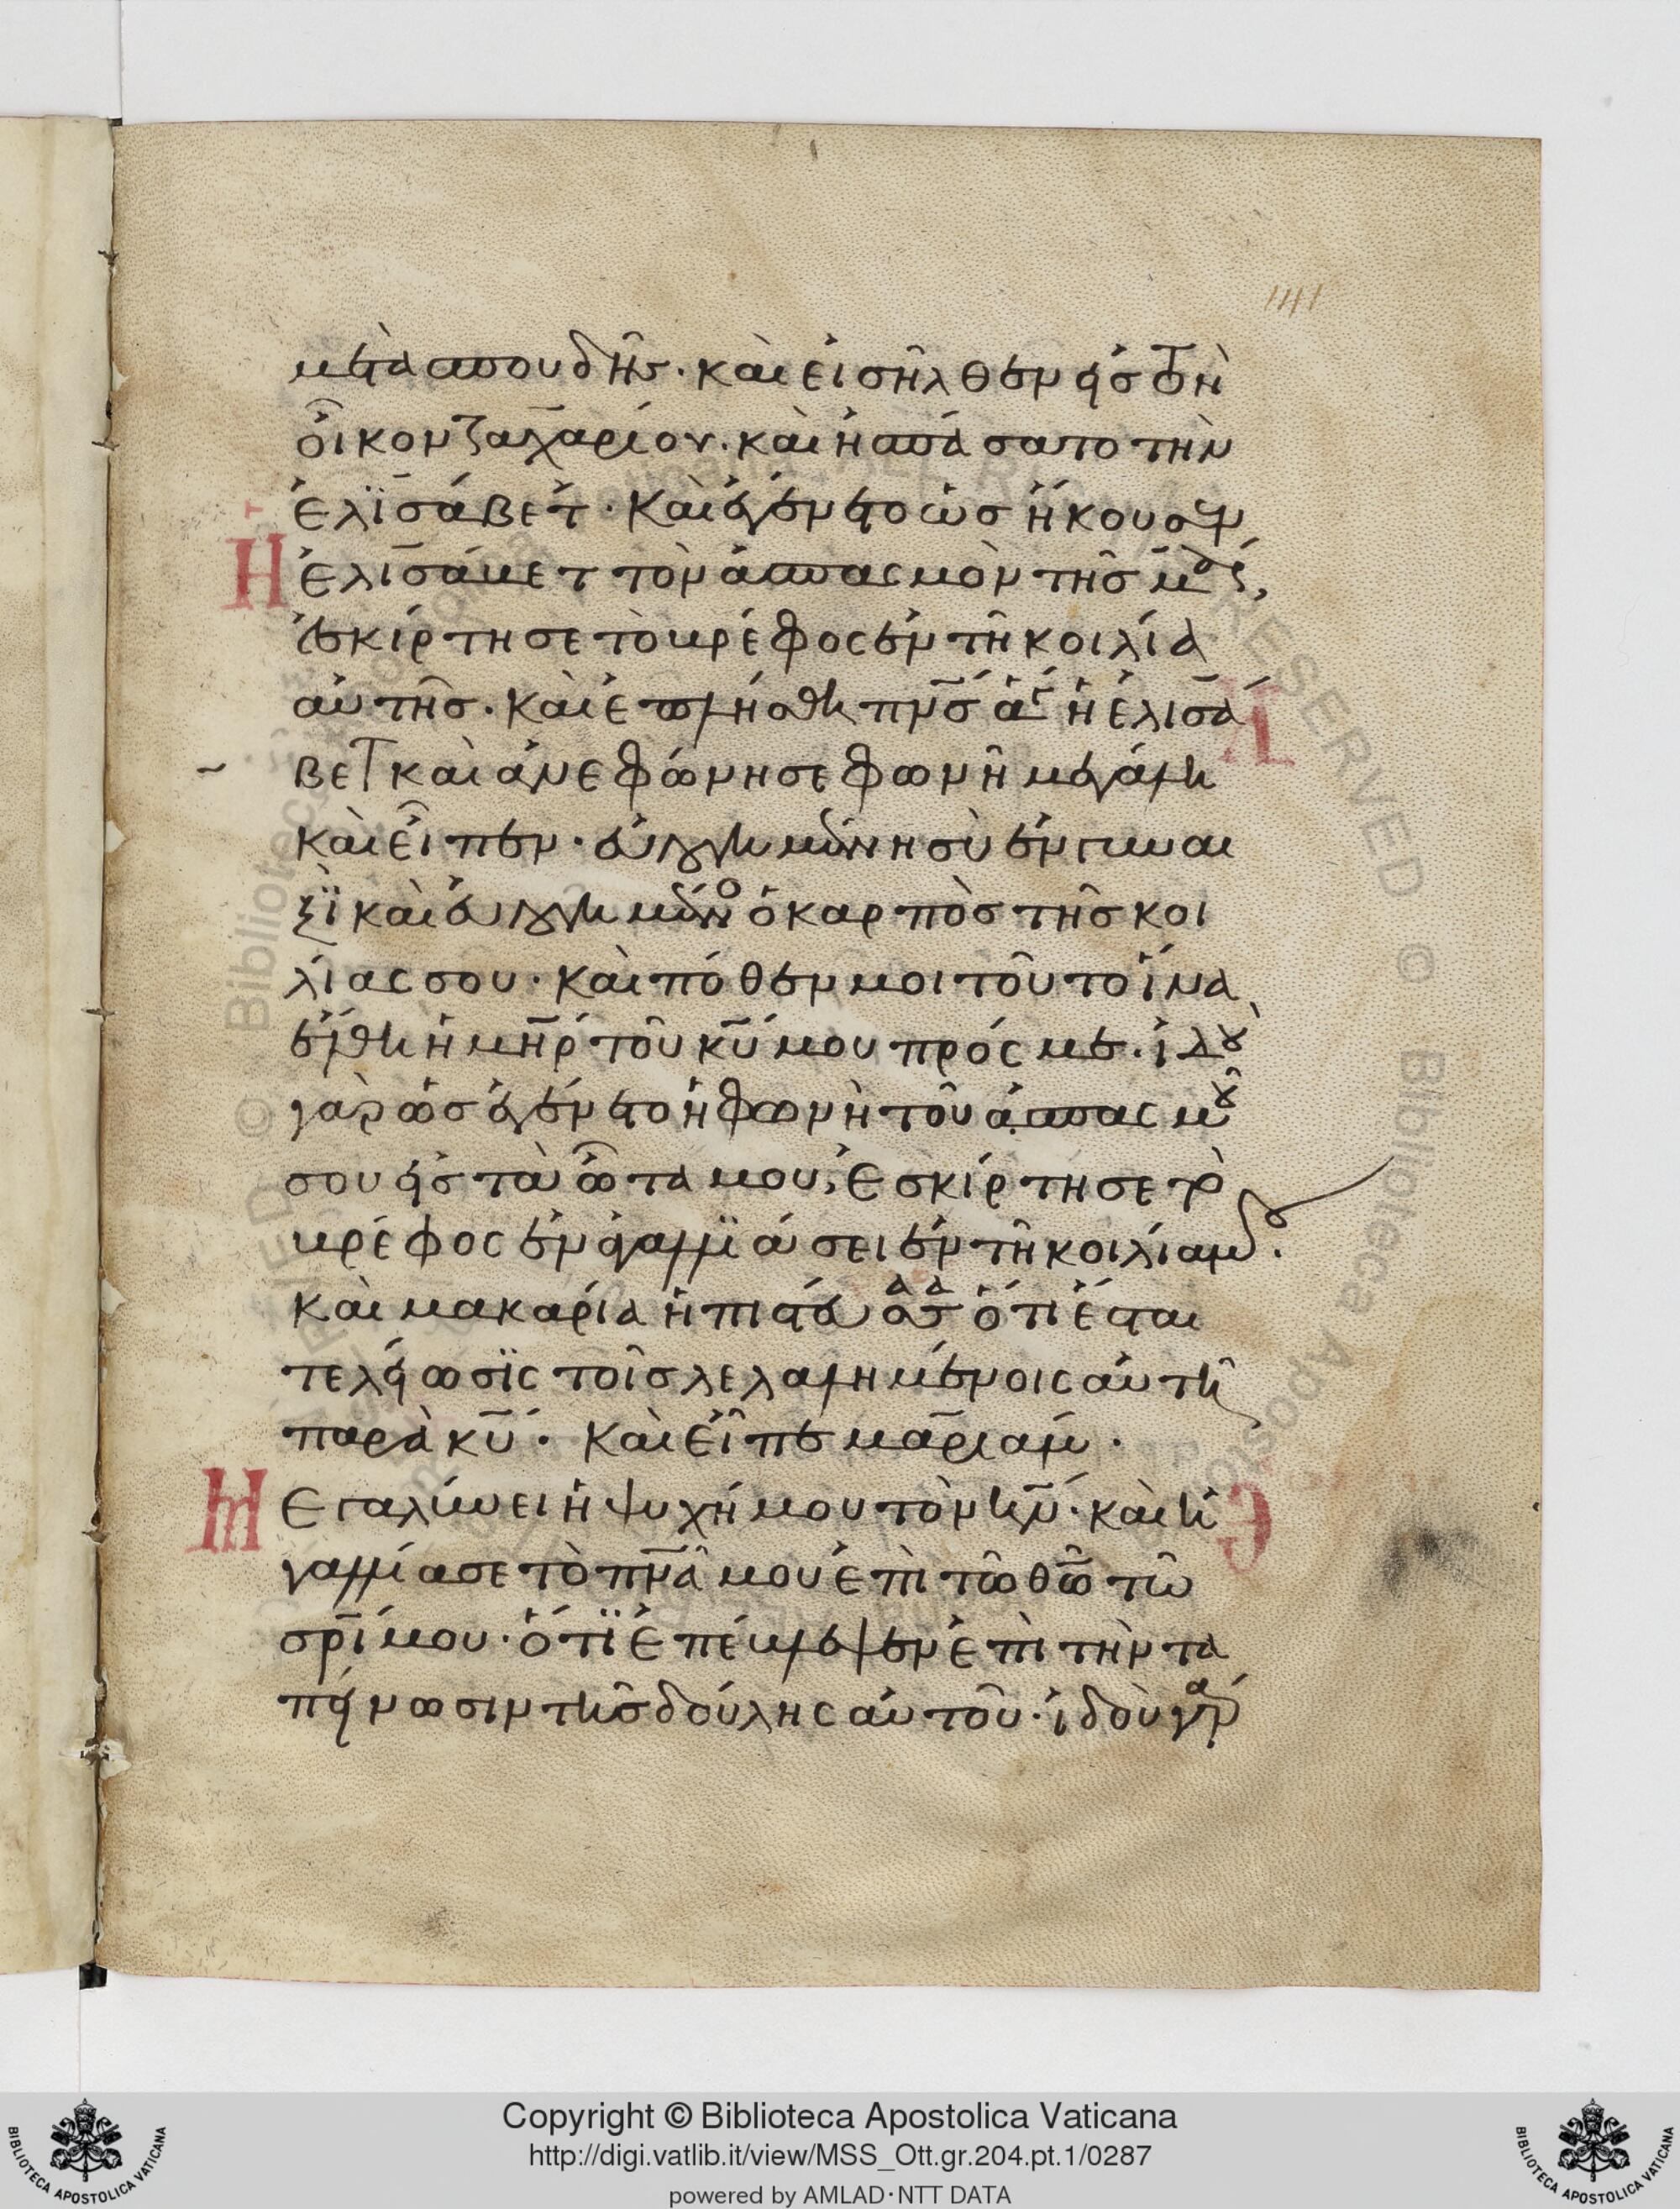 141
μετὰ σπουδῆς· καὶ εἰσῆλθεν εἰς τὸν
οἶκον ζαχαρίου· καὶ ἠσπάσατο τὴν
ἐλϊσάβετ· Καὶ ἐγένετο ὡς ἤκουσεν
Η ἐλισάβετ τὸν ἀσπασμὸν τῆς μ̅ρ̅ς,
ἐσκίρτησε τὸ βρέφος ἐν τῆ κοιλία
αὐτῆς· καὶ ἐπλήσθη πν̅ς ἁγ ἡ ἐλισά
βετ καὶ ἀνεφώνησε φωνῆ μεγάλη
καὶ εἶπεν· εὐλογημένη σὺ ἐν γυναι
ξῒ καὶ εὐλογημένο ὁ καρπὸς τῆς κοι
λίας σου· καὶ πόθεν μοι τοῦτο ἵνα
ἔλθη ἡ μη̅ρ τοῦ κυ̅ μου πρός με· ἰδοὺ
γὰρ ὡς ἐγένετο ἡ φωνὴ τοῦ ἀσπασμοῦ
σου εἰς τὰ ὦτα μου, ἐσκίρτησε τὸ
βρέφος ἐν ἀγαλλϊάσει ἐν τῆ κοιλία μου·
καὶ μακαρία ἡ πιστεύσασα ὅτι ἔσται
τελείωσϊς τοῖς λελαλημένοις αὐτῆ
παρὰ κυ̅· Καὶ εἶπε μαριάμ·
Μ Εγαλύνει ἡ ψυχή μου τὸν κν̅· καὶ ἠ
γαλλίασε τὸ πν̅α μου ἐπὶ τῶ θω̅ τῶ
σρ̅ι μου· ὅτϊ ἐπέβλεψεν ἐπὶ τὴν τα
πείνωσιν τῆς δούλης αὐτοῦ· ἰδοὺ γὰρ
© Biblioteca Apostolica Vaticana
BIBLIOTECA APOSTOLICA VATICANA
Copyright © Biblioteca Apostolica Vaticana
http://digi.vatlib.it/view/MSS_Ott.gr.204.pt.1/0287
powered by AMLAD·NTT DATA
BIBLIOTECA APOSTOLICA VATICANA